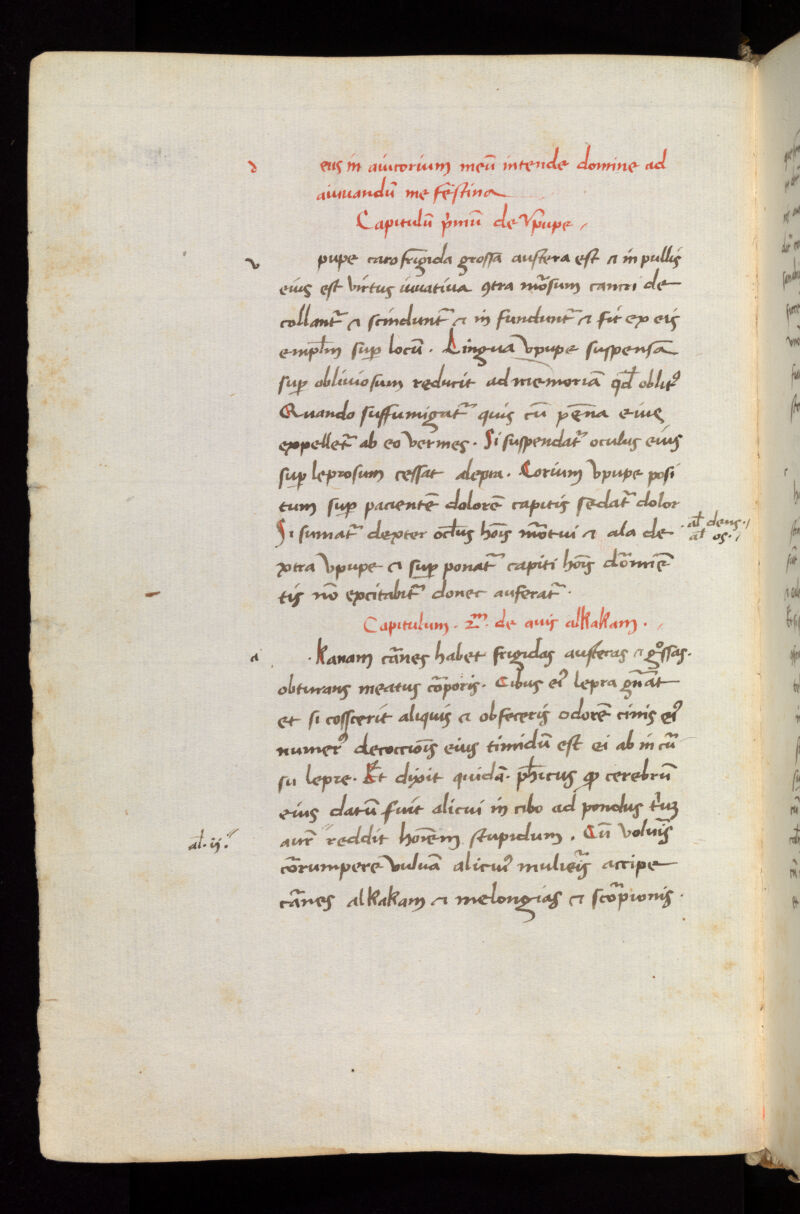 d eus in aiutorium meū intende domine ad
aiuuandū me festina
Capitulū p̄imū de Vpupe
v pupe caro frigida grossa austera est & in pullis
eius est virtus iuuatiua 9tra morsum cancri de
collant᷑ & scindunt᷑ & in fundunt᷑ & fit ex eis
emplm̄ sup locū . Lingua vpupe suspensa
sup obliuiosum reducit ad memoriā qd̄ oblit᷒
Quando suffumigat᷑ quis cū pēna eius
expellet᷑ ab eo vermes . Si suspendat᷑ oculus eius
sup leprosum cessat alepra . Corium vpupe posi
tum sup pacientē dolorē capitis sedat᷑ dolor
Si sumat᷑ dexter ocl̄us hoīs mortui & ala de
. al̄ dens .
al̄ os .
xtra vpupe & sup ponat᷑ capiti hoīs dormiē
tis nō excitabit᷑ donec auferat᷑ .
Capitulum . 2ᵐ . de auis alkakam .
a . kanam carnes habet frigidas austeras & grossas .
obturans meatus corporis . Cibus ei᷒ lepra gn̄at
et si cosscerit aliquis & obfeceris odorē cinis ei᷒
numer᷒ decoccioīs eius timidū est ei ab in cur
su lepre . Et dixit quidā . ph̄icus qp cerebrū
eius datū fuit alicui in cibo ad pondus
al̄ . ij .
aur̄ reddit hoīem stupidum . Cū volueris
corrumpere vuluā alicui᷒ mulieris accipe
carnes alkakam & melongias & scorpionis .